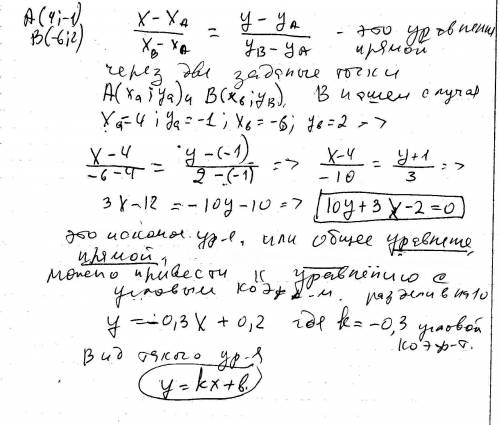 A(4;-1)
B(-6;2)
x - xA / xB - xA = y - yA / yB - yA - это уравнение
прямой
через две заданые точки
A(xa; ya) и B(xb; yB). В нашем случае
xa=4; ya=-1; xb=-6; yb=2 =>
x-4 / -6-4 = y-(-1) / 2-(-1) => x-4 / -10 = y+1 / 3 =>
3x-12 = -10y-10 => 10y+3x-2=0
это искомое ур-е, или общее уравнение
прямой,
можно привести к уравнению с
угловым коэф-м. разделив на 10
y = -0,3x + 0,2 где k = -0,3 угловой
коэф-т.
Вид такого ур-я
y = kx+b.